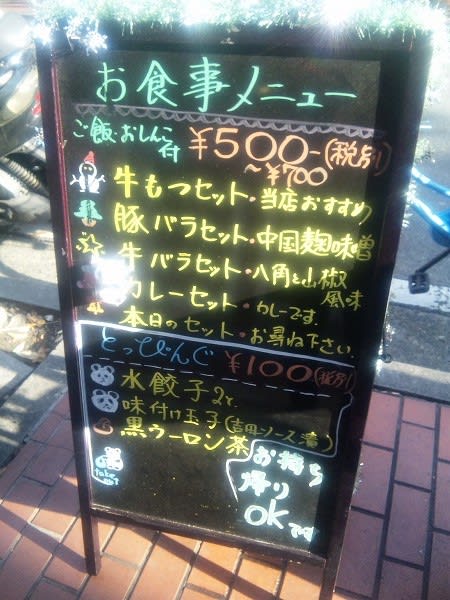 お食事メニュー
ご飯・おしんこ付 ¥500-(税別)
～¥700
牛もつセット・当店おすすめ
豚バラセット・中国麹味噌
牛バラセット・八角と山椒風味
カレーセット・カレーです。
本日のセット・お尋ね下さい。
とっぴんぐ ¥100(税別)
水餃子2ケ
味付け玉子(吉田ソース漬)
黒ウーロン茶
お持ち
帰り
OKです
take out